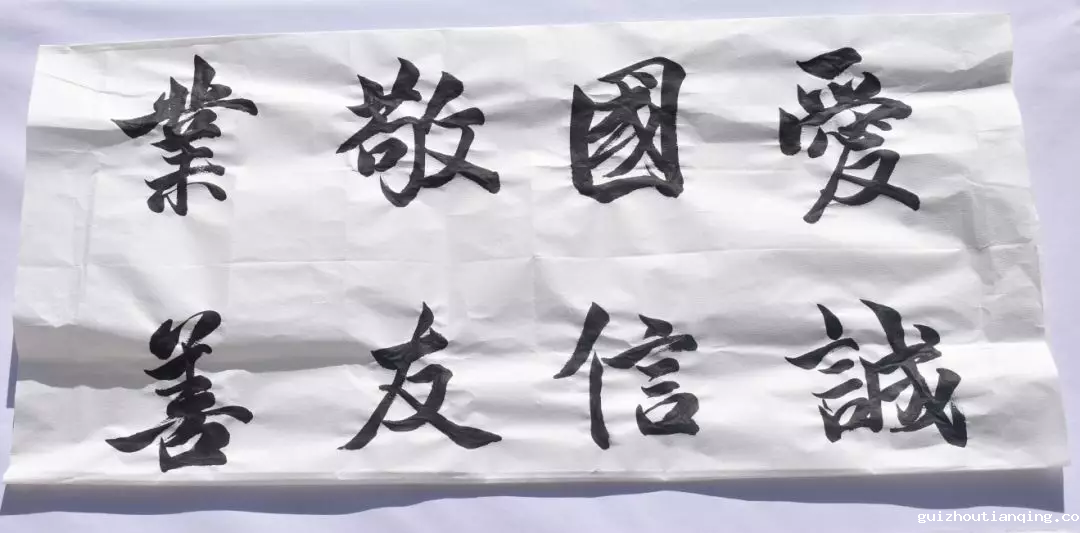 愛國敬業
誠信友善
guizhoutianqing.co